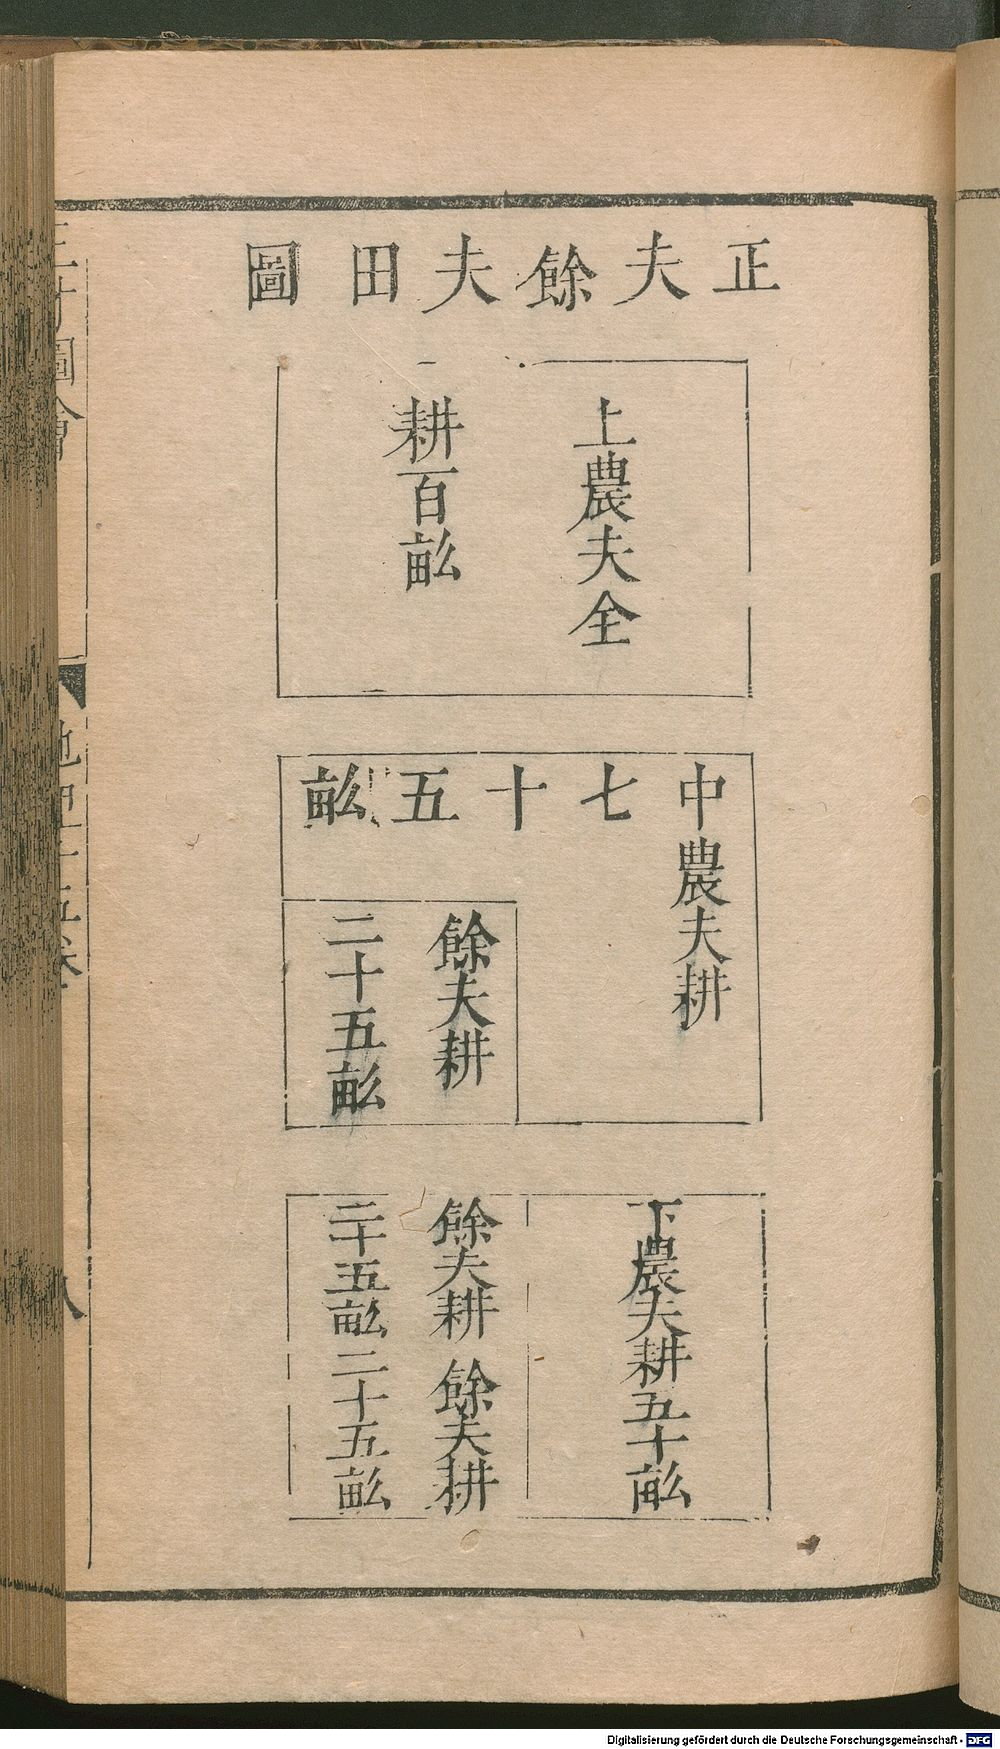 正夫餘夫田圖
上農夫全
耕百畝
中農夫耕
七十五畝
餘夫耕
二十五畝
下農夫耕五十畝
餘夫耕
二十五畝
餘夫耕
二十五畝
圖會
八
Digitalisierung gefördert durch die Deutsche Forschungsgemeinschaft - DFG